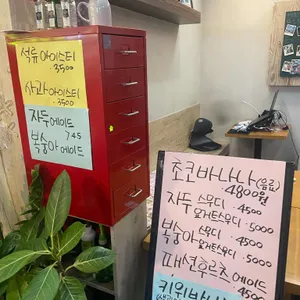 석류아이스티
3,500
사과아이스티
3500
자두에이드
복숭아에이드
초코바나나(음료)
4800원
자두 스무디 4500
요거트스무디 5000
복숭아 스무디 4500
요거트스무디 5000
패션후르츠에이드
4500
키위바나나